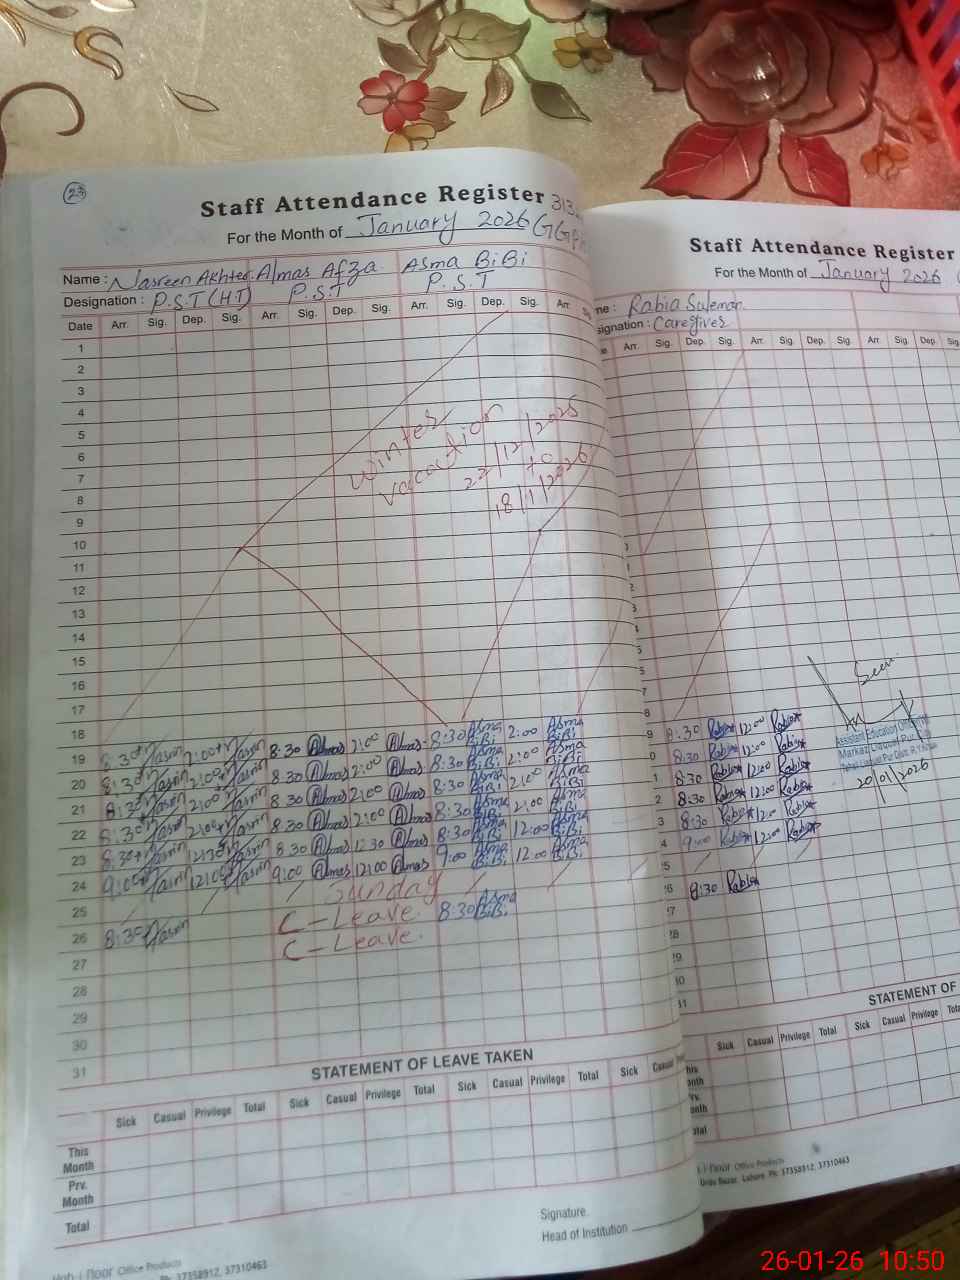 23
Staff Attendance Register
For the Month of January 2026
Name : Nasreen Akhter. Almas Afza. Asma BiBi
Designation : P.S.T (HT) P.S.T P.S.T
Date Arr. Sig. Dep. Sig. Arr. Sig. Dep. Sig. Arr. Sig. Dep. Sig. Arr.
1
2
3
4
5
6
7
8
9
10
11
12
13
14
15
16
17
18
winter
vacation
22/12/2025
to
18/1/2026
19 8:30 Nasrin 2:00 Nasrin 8:30 Almas 2:00 Almas 8:30 Asma BiBi 2:00 Asma BiBi
20 8:30 Nasrin 2:00 Nasrin 8:30 Almas 2:00 Almas 8:30 Asma BiBi 2:00 Asma BiBi
21 8:30 Nasrin 2:00 Nasrin 8:30 Almas 2:00 Almas 8:30 Asma BiBi 2:00 Asma BiBi
22 8:30 Nasrin 2:00 Nasrin 8:30 Almas 2:00 Almas 8:30 Asma BiBi 2:00 Asma BiBi
23 8:30 Nasrin 12:30 Nasrin 8:30 Almas 12:30 Almas 8:30 Asma BiBi 12:00 Asma BiBi
24 9:00 Nasrin 12:00 Nasrin 9:00 Almas 12:00 Almas 9:00 Asma BiBi 12:00 Asma BiBi
25 Sunday
26 8:30 Nasrin C - Leave. 8:30 Asma BiBi
27 C - Leave.
28
29
30
31
STATEMENT OF LEAVE TAKEN
Sick Casual Privilege Total Sick Casual Privilege Total Sick Casual Privilege Total Sick Casual
This Month
Prv. Month
Total
Signature.
Head of Institution
Office Products
Ph: 37358912, 37310463
Staff Attendance Register
For the Month of January 2026
Rabia Suleman
Caregiver
Arr. Sig. Dep. Sig. Arr. Sig. Dep. Sig. Arr. Sig. Dep. Sig.
8:30 Rabia 12:00 Rabia
8:30 Rabia 12:00 Rabia
8:30 Rabia 12:00 Rabia
8:30 Rabia 12:00 Rabia
8:30 Rabia 12:00 Rabia
9:00 Rabia 12:00 Rabia
8:30 Rabia
Seen
Assistant Education Officer
Markaz Liaquat Pur
20/01/2026
STATEMENT OF
Sick Casual Privilege Total Sick Casual Privilege
Office Products
Urdu Bazar, Lahore Ph: 37358912, 37310463
26-01-26 10:50